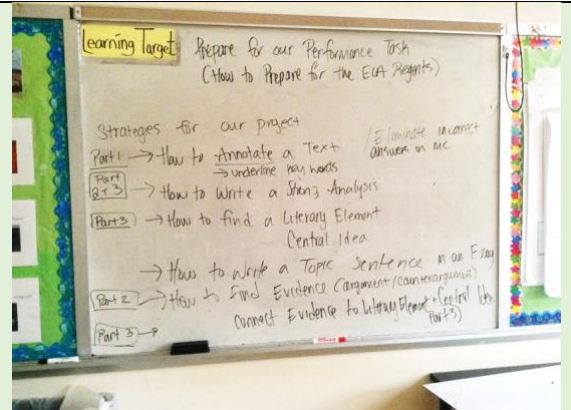 Learning Target: Prepare for our Performance Task
(How to Prepare for the ELA Regents)
Strategies for our project
Part 1 → How to Annotate a Text
→ underline key words
/Eliminate incorrect
answers in MC
Part
2 + 3 → How to Write a Analysis
Part 3 → How to find a Literary Element
Central Idea
→ How to Write a Topic Sentence in an Essay
Part 2 → How to Find Evidence (argument/counterargument)
Part 3 → Connect Evidence to Literary Element + Central Idea
Part 3)